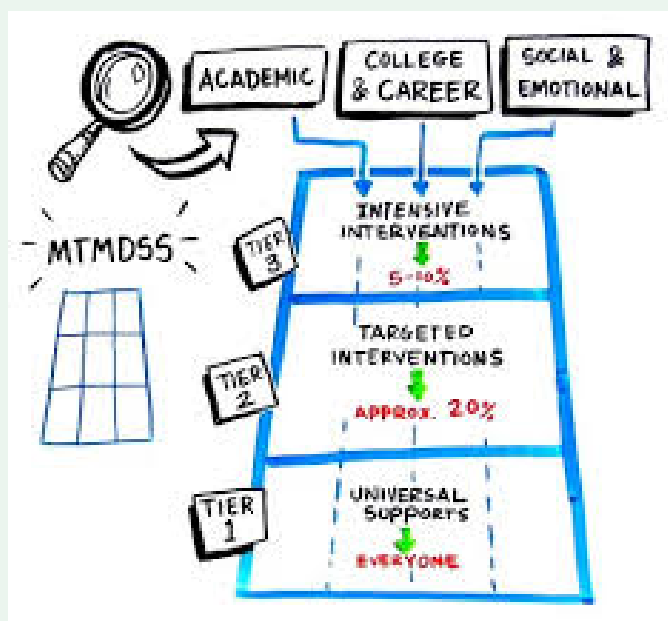 ACADEMIC
COLLEGE
& CAREER
SOCIAL &
EMOTIONAL
MTMDSS
TIER
3
INTENSIVE
INTERVENTIONS
5-10%
TIER
2
TARGETED
INTERVENTIONS
APPROX. 20%
TIER
1
UNIVERSAL
SUPPORTS
EVERYONE